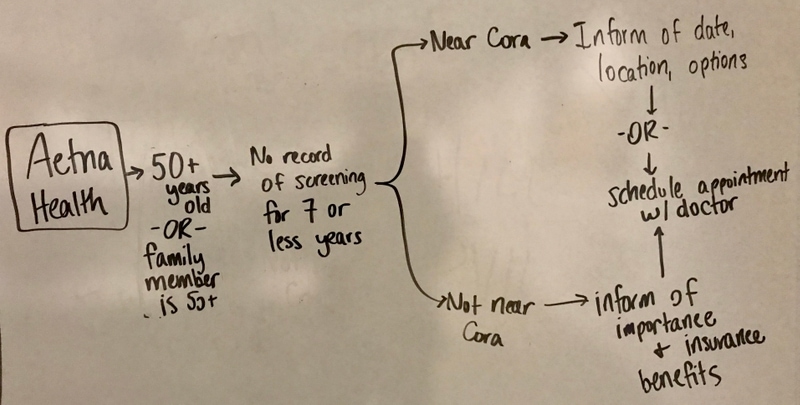 Aetna
Health
50+
years
old
-OR-
family
member
is 50+
No record
of screening
for 7 or
less years
Near Cora
Inform of date,
location, options
-OR-
schedule appointment
w/ doctor
Not near
Cora
inform of
importance
+ insurance
benefits